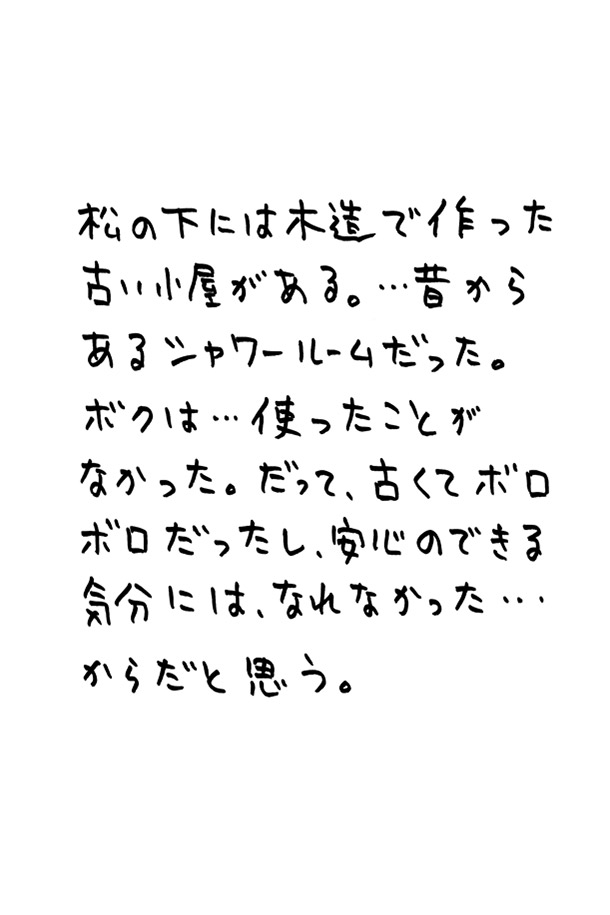 松の下には木造で作った
古い小屋がある。…昔から
あるシャワールームだった。
ボクは…使ったことが
なかった。だって、古くてボロ
ボロだったし、安心のできる
気分には、なれなかった…
からだと思う。